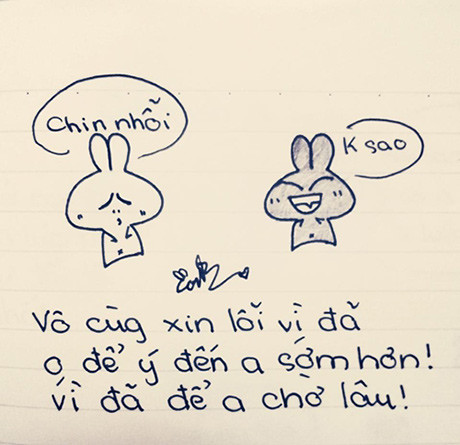 Chin nhỗi
K sao
Vô cùg xin lỗi vì đã
o để ý đến a sớm hơn!
vì đã để a chờ lâu!